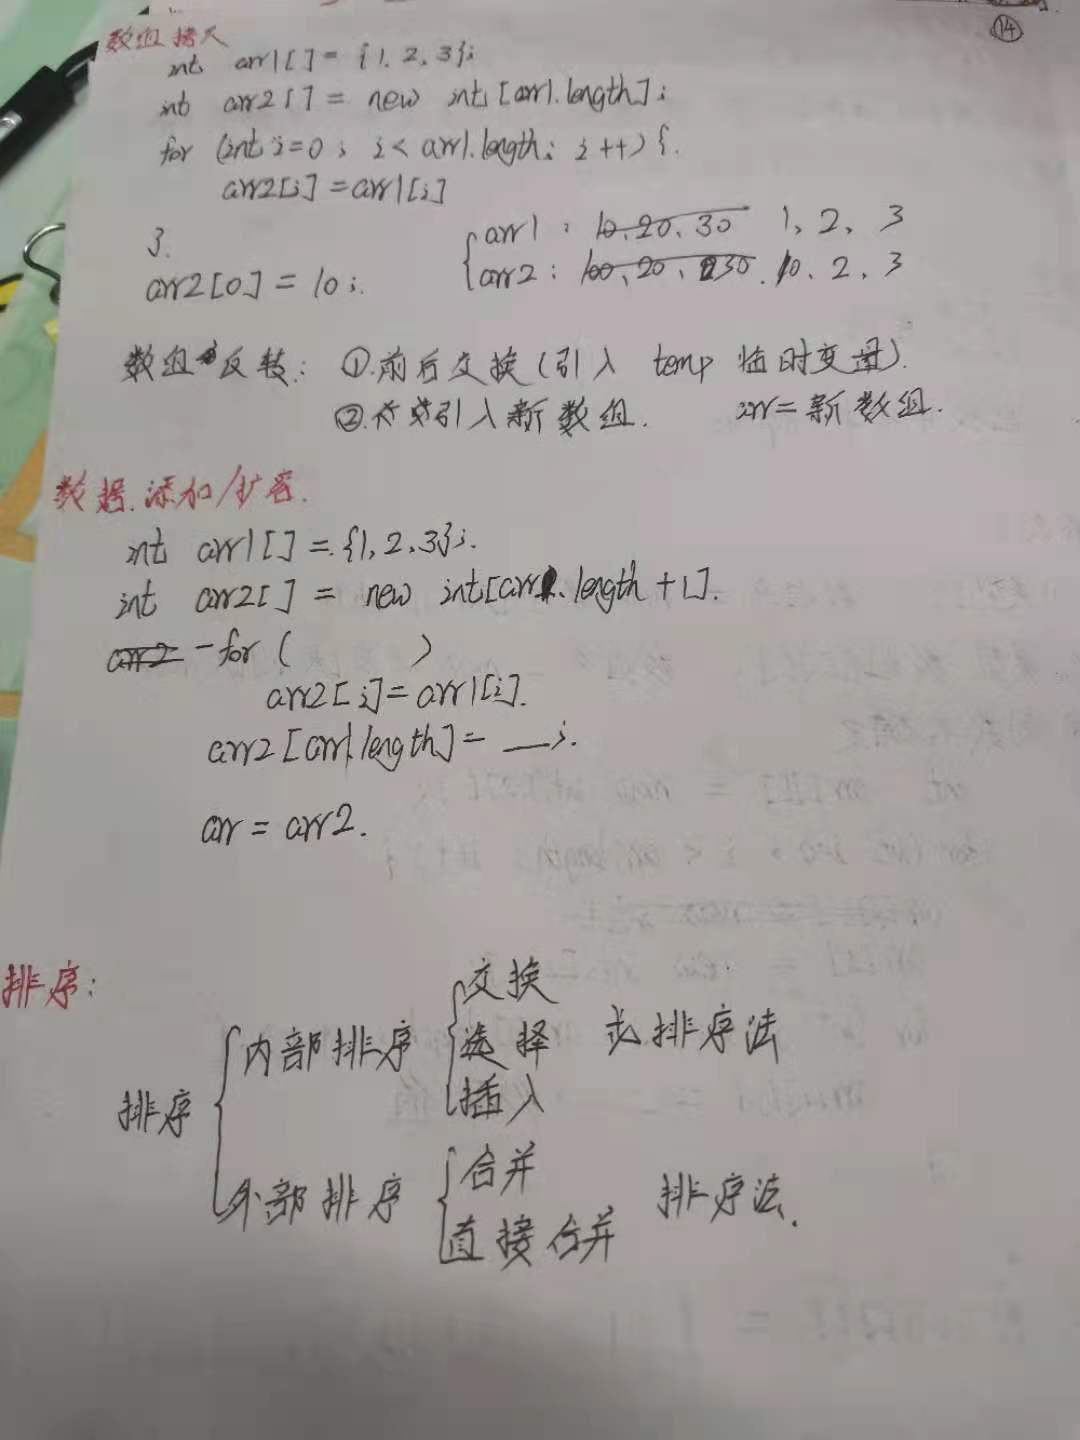 14
数组拷贝
int arr1[] = {1, 2, 3};
int arr2[] = new int[arr1.length];
for (int i=0; i< arr1.length; i++) {
arr2[i] = arr1[i]
}
arr2[0] = 10;
arr1: 10、20、30 1, 2, 3
arr2: 100、20、30. 10、2、3
数组反转: ①.前后交换(引入 temp 临时变量).
②. 引入新数组. arr=新数组.
数据.添加/扩容.
int arr1[] = {1,2,3};
int arr2[] = new int[arr1.length+1].
arr2 for ( )
arr2[i]=arr1[i].
arr2[arr1.length]= __;
arr = arr2.
排序:
排序
内部排序
交换
选择 排序法
插入
外部排序
合并
直接合并 排序法.